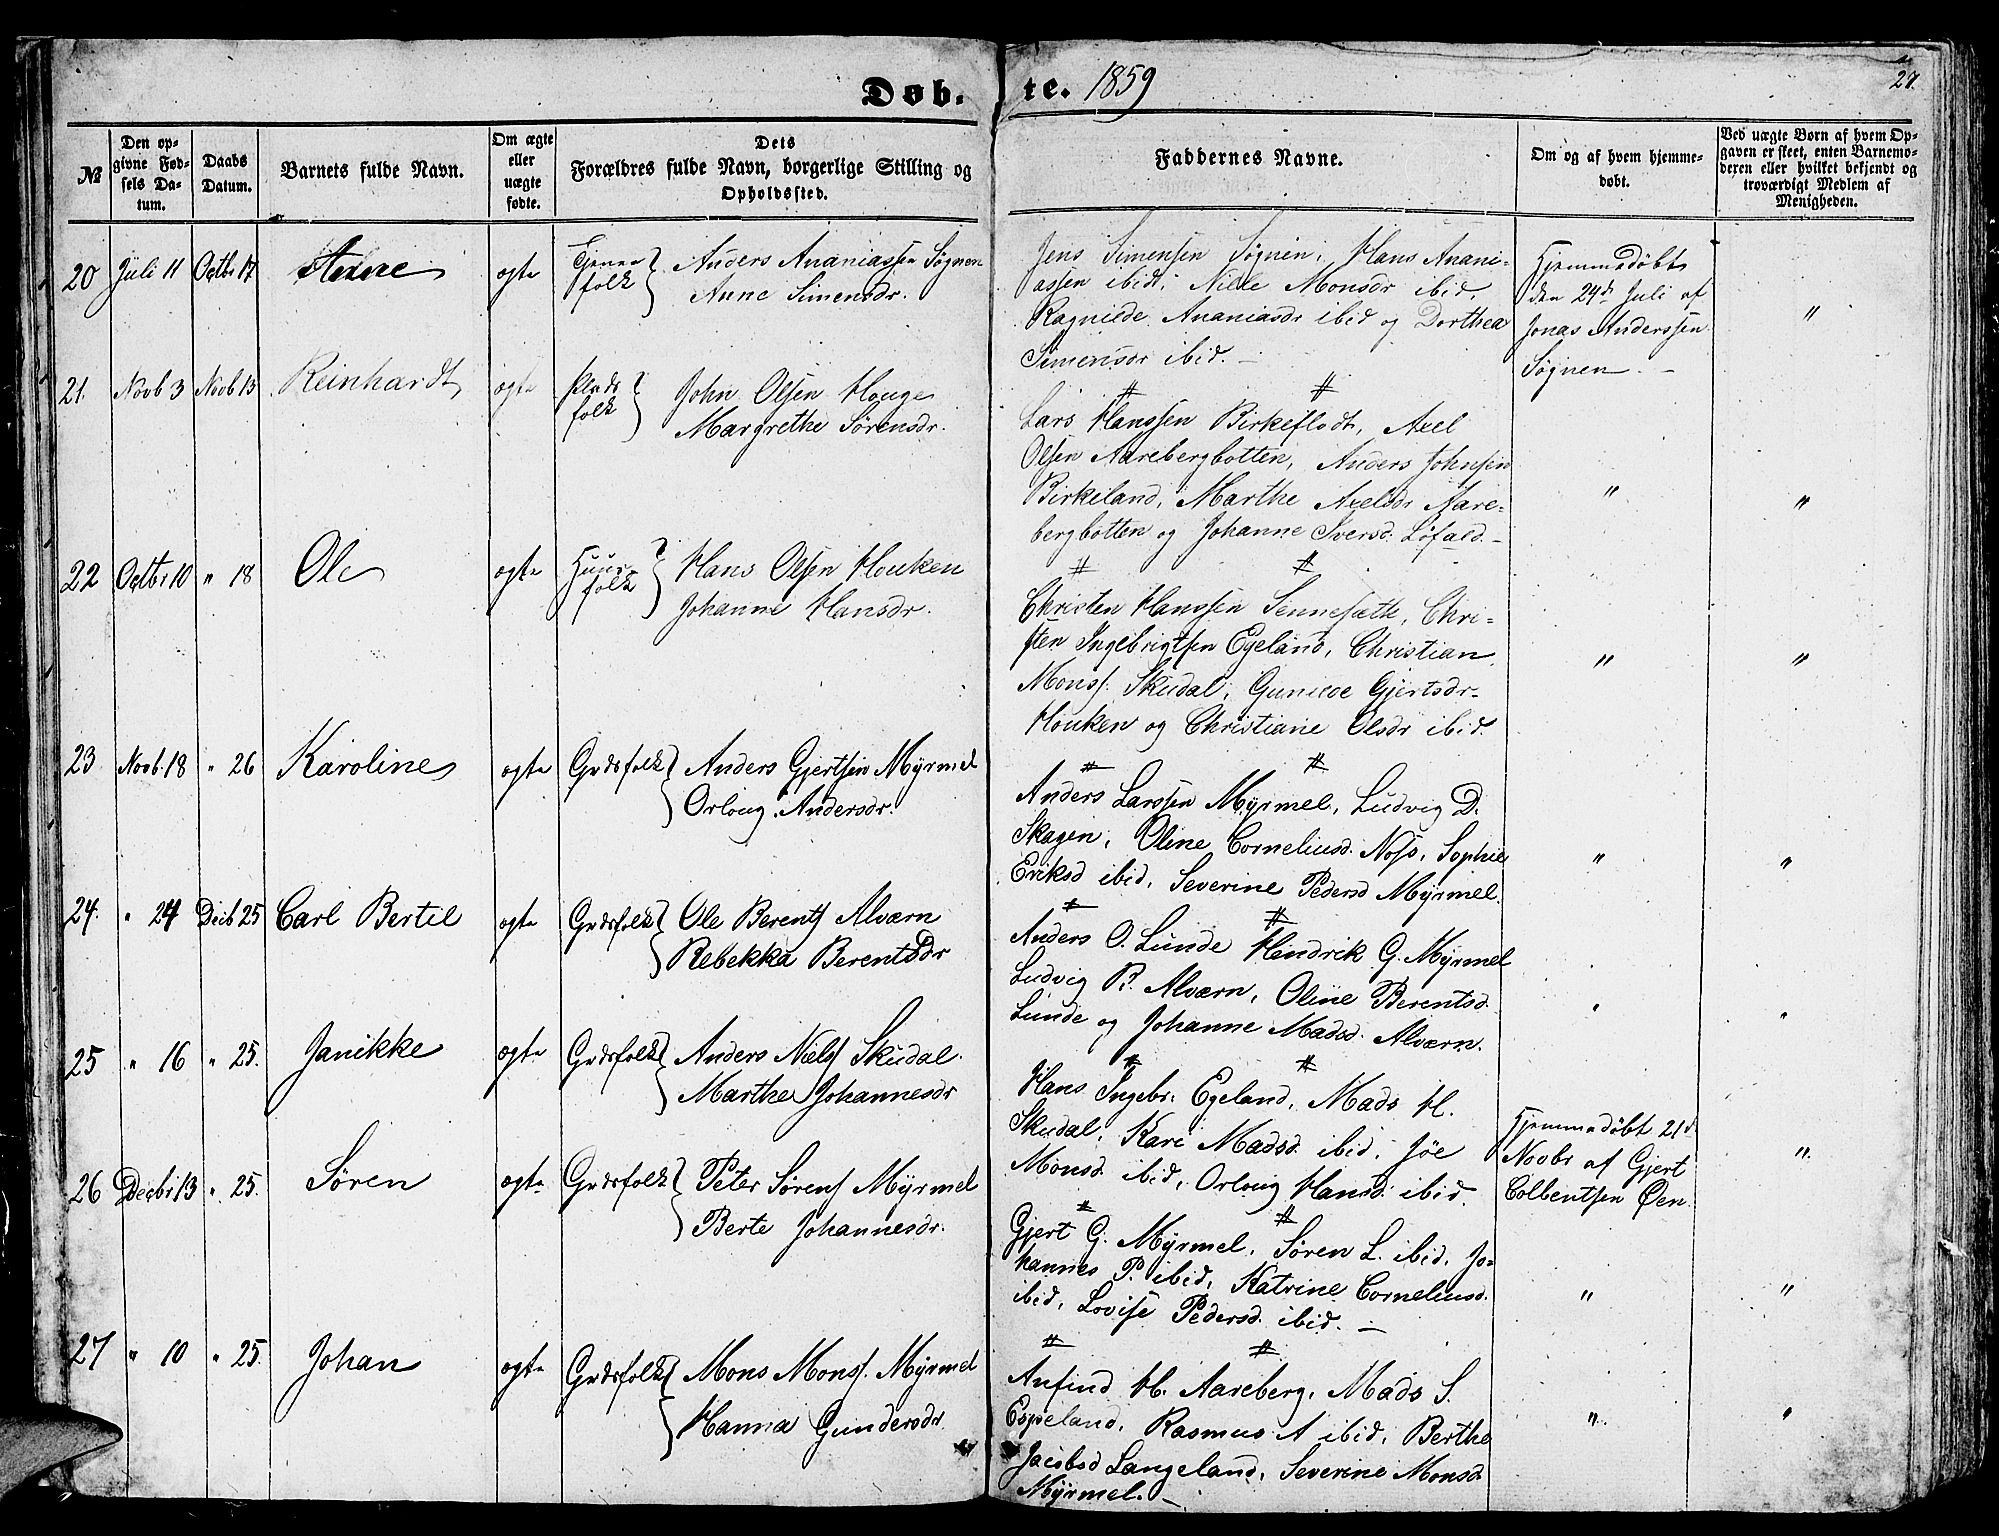 Døb. te. 1859
27.
№
Den op-
givne Fød-
sels Da-
tum.
Daabs
Datum.
Barnets fulde Navn.
Om ægte
eller
uægte
fødte.
Dets
Forældres fulde Navn, borgerlige Stilling og
Opholdssted.
Faddernes Navne.
Om og af hvem hjemme-
døbt.
Ved uægte Børn af hvem Op-
gaven er skeet, enten Barnemo-
deren eller hvilket bekjendt og
troværdigt Medlem af
Menigheden.
20 Juli 11 Octbr 17 ægte Tjenne
folk } Anders Ananiassen Søgnen
Anne Simensdr.
Jens Simensen Søgnen, Hans Anani-
assen ibid, Nille Monsdr ibid,
Ragnilde Ananiasdr ibid og Dorthea
Simensdr ibid. –
Hjemmedøbt
den 24de Juli af
Jonas Anderssen
Søgnen. –
"
21. Novb 3 Novb 13 Reinhardt ægte Plads
folk } John Olsen Houge
Margrethe Sørensdr.
# #
Lars Hanssen Birkeflodt, Axel
Olsen Aarebergbotten, Anders Johnsen
Birkeland, Marthe Axelsdr Aare-
bergbotten og Johanne Iversd. Løfald. –
" "
22 Octbr 10 " 18 Ole ægte Huus
folk } Hans Olsen Houken
Johanne Hansdr.
# #
Christen Hanssen Sennesæth, Chri-
sten Ingebrigtsen Egeland, Christian
Mons. Skudal, Gunilde Gjertsdr
Houken og Christiane Olsdr ibid.
" "
23 Novb. 18 " 26 Karoline ægte Grdsfolk } Anders Gjertsen Myrmel
Orloug Andersdr.
# #
Anders Larssen Myrmel, Ludvig D.
Skagen, Oline Corneliusd. Nosø, Sophie
Eriksd ibid, Severine Pedersd Myrmel.
" "
24. " 24 Decb 25 Carl Bertil ægte Grdsfolk } Ole Berents Alværn
Rebekka Berentsdr
# #
Anders O. Lunde Hendrik G. Myrmel
Ludvig B. Alværn, Oline Berentsd.
Lunde og Johanne Madsd. Alværn.
" "
25 " 16 " 25. Janikke ægte Grdsfolk } Anders Niels Skudal.
Marthe Johannesdr
# #
Hans Ingebr. Egeland, Mads H.
Skudal, Kari Madsd. ibid, Jøe
Monsd. ibid, Orloug Hansd. ibid.
Hjemmedøbt 21d
Novbr af Gjert
Colbentsen Øen.
"
26 Decbr 13 " 25. Søren ægte Grdsfolk } Peter Sørens Myrmel
Berte Johannesdr.
# #
Gjert G. Myrmel, Søren L. ibid, Jo-
hannes P. ibid, Katrine Corneliusd.
ibid, Lovise Pedersd. ibid. –
" "
27 " 10 " 25. Johan ægte Grdsfolk } Mons Mons. Myrmel
Hanna Gundersdr
# #
Anfind H. Aareberg, Mads S.
Espeland, Rasmus A ibid, Berthe
Jacobsd Langeland, Severine Monsd.
Myrmel. –
" "